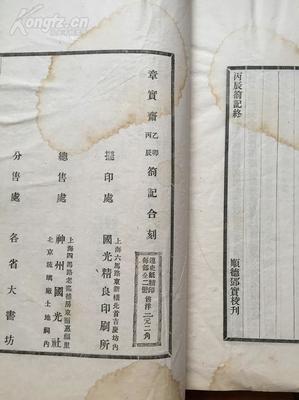 丙辰劄記終
順德鄧實校刊
章實齋乙卯丙辰劄記合刻
連史紙精印每部全二冊售洋三元二角
印處 國光精良印刷所
上海六馬路東新橋北首吉慶坊內
總售處 神州國光社
上海四馬路老巡捕房東首惠福里
北京琉璃廠土地祠內
分售處 各省大書坊